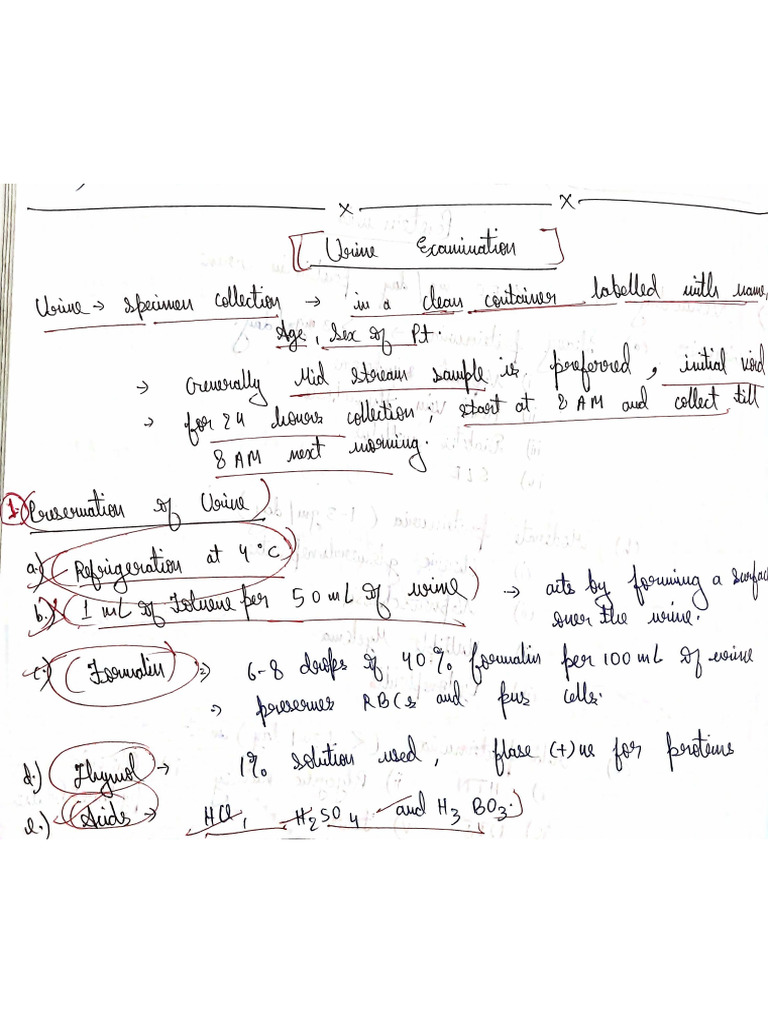 Urine Examination
Urine → Specimen collection → in a clean container labelled with name,
Age, Sex of Pt.
→ Generally Mid stream sample is preferred, initial void
→ for 24 hours collection, start at 8 AM and collect till
8 AM next morning.
1. Preservation of Urine
a.) Refrigeration at 4°C
b.) 1 mL of Toluene per 50 mL of urine → acts by forming a surface
over the urine.
c.) (Formalin) → 6-8 drops of 40% formalin per 100 mL of urine
→ preserves RBCs and pus cells.
d.) Thymol → 1% solution used, flase (+)ve for proteins
e.) (Acids → HCl, H2SO4 and H3BO3.)